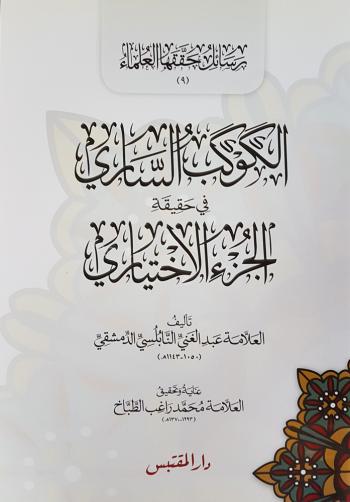 رسائل حققها العلماء
(٩)
الكوكب الساري
في حقيقة
الجزء الاختياري
تأليف
العلامة عبد الغني النابلسي الدمشقي
(١٠٥٠-١١٤٣هـ)
عناية وتحقيق
العلامة محمد راغب الطباخ
(١٢٩٣-١٣٧٠هـ)
دار المقتبس